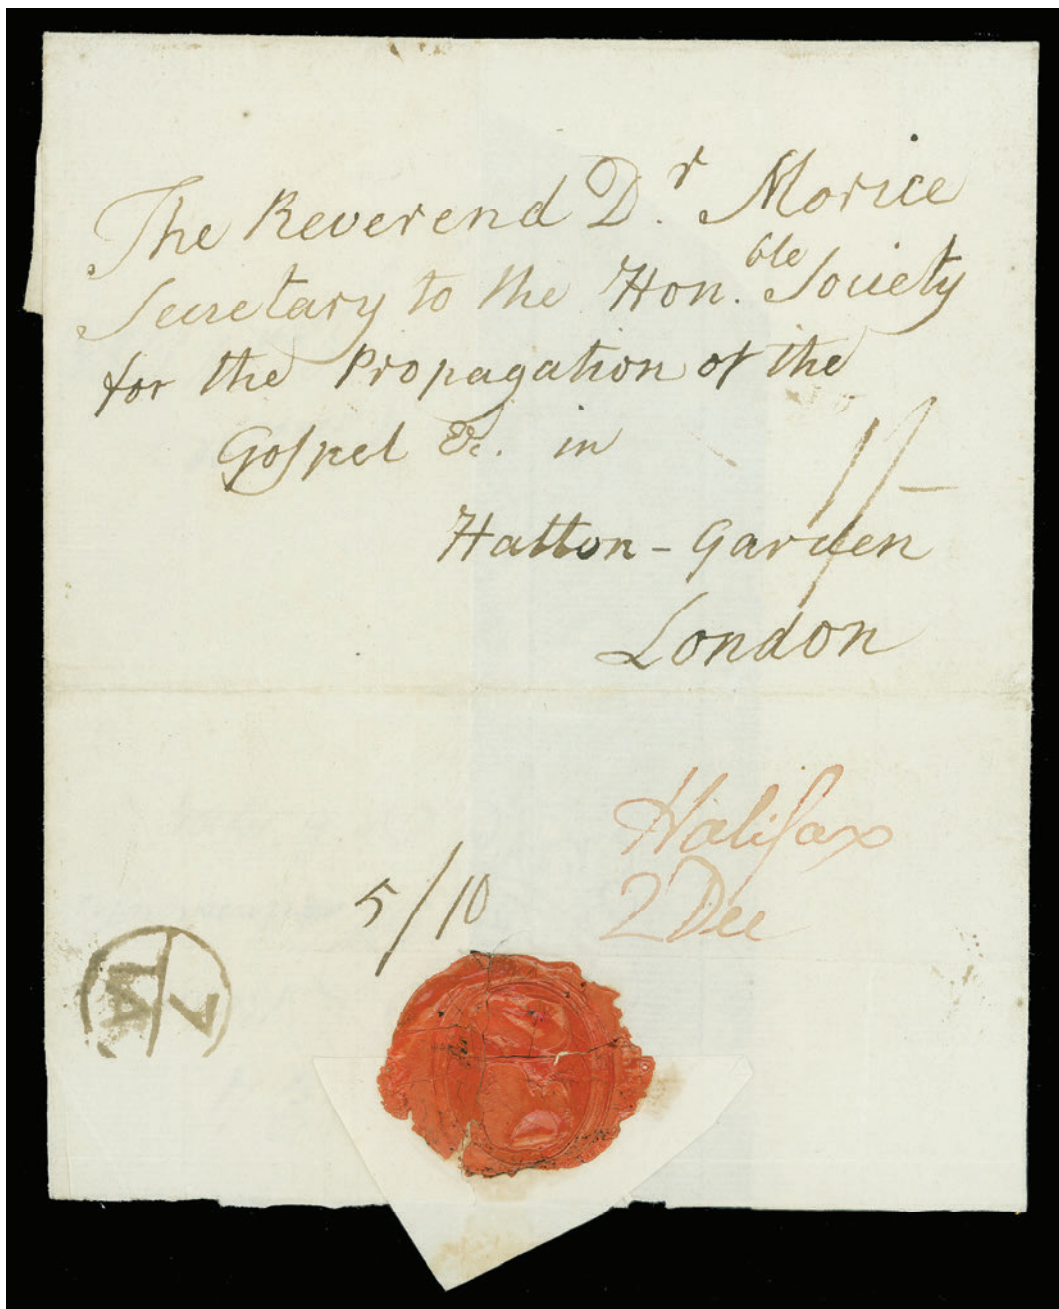 The Reverend D.r Morice
Secretary to the Hon.ble Society
for the Propagation of the
Gospel &c. in
1/-
Hatton - Garden
London
Halifax
2 Dec
5/10